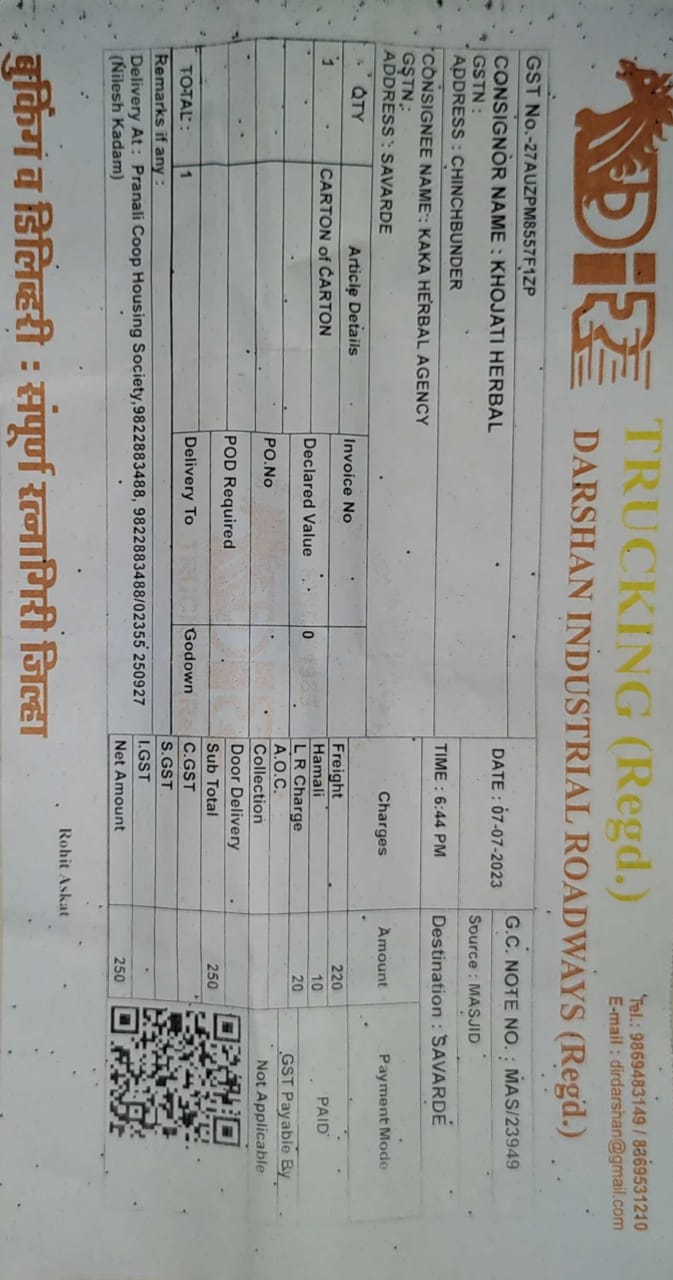 DIR TRUCKING (Regd.)
DARSHAN INDUSTRIAL ROADWAYS (Regd.)
Tel.: 9869483149 / 8369531210
E-mail : dirdarshan@gmail.com
GST No.-27AUZPM8557F1ZP
G.C. NOTE NO. : MAS/23949
CONSIGNOR NAME : KHOJATI HERBAL
DATE : 07-07-2023
GSTN :
Source : MASJID
ADDRESS : CHINCHBUNDER
CONSIGNEE NAME : KAKA HERBAL AGENCY
TIME : 6:44 PM
Destination : SAVARDE
GSTN :
ADDRESS : SAVARDE
QTY Article Details Invoice No Charges Amount Payment Mode
1 CARTON of CARTON Declared Value 0 Freight 220 PAID
Hamali 10
L R Charge 20
PO.No A.O.C. GST Payable By
Collection Not Applicable
POD Required Door Delivery
Sub Total 250
TOTAL : 1 Delivery To Godown C.GST
Remarks if any : S.GST
Delivery At : Pranali Coop Housing Society,9822883488, 9822883488/02355 250927 I.GST
(Nilesh Kadam) Net Amount 250
Rohit Askat
बुकिंग व डिलिव्हरी : संपूर्ण रत्नागिरी जिल्हा